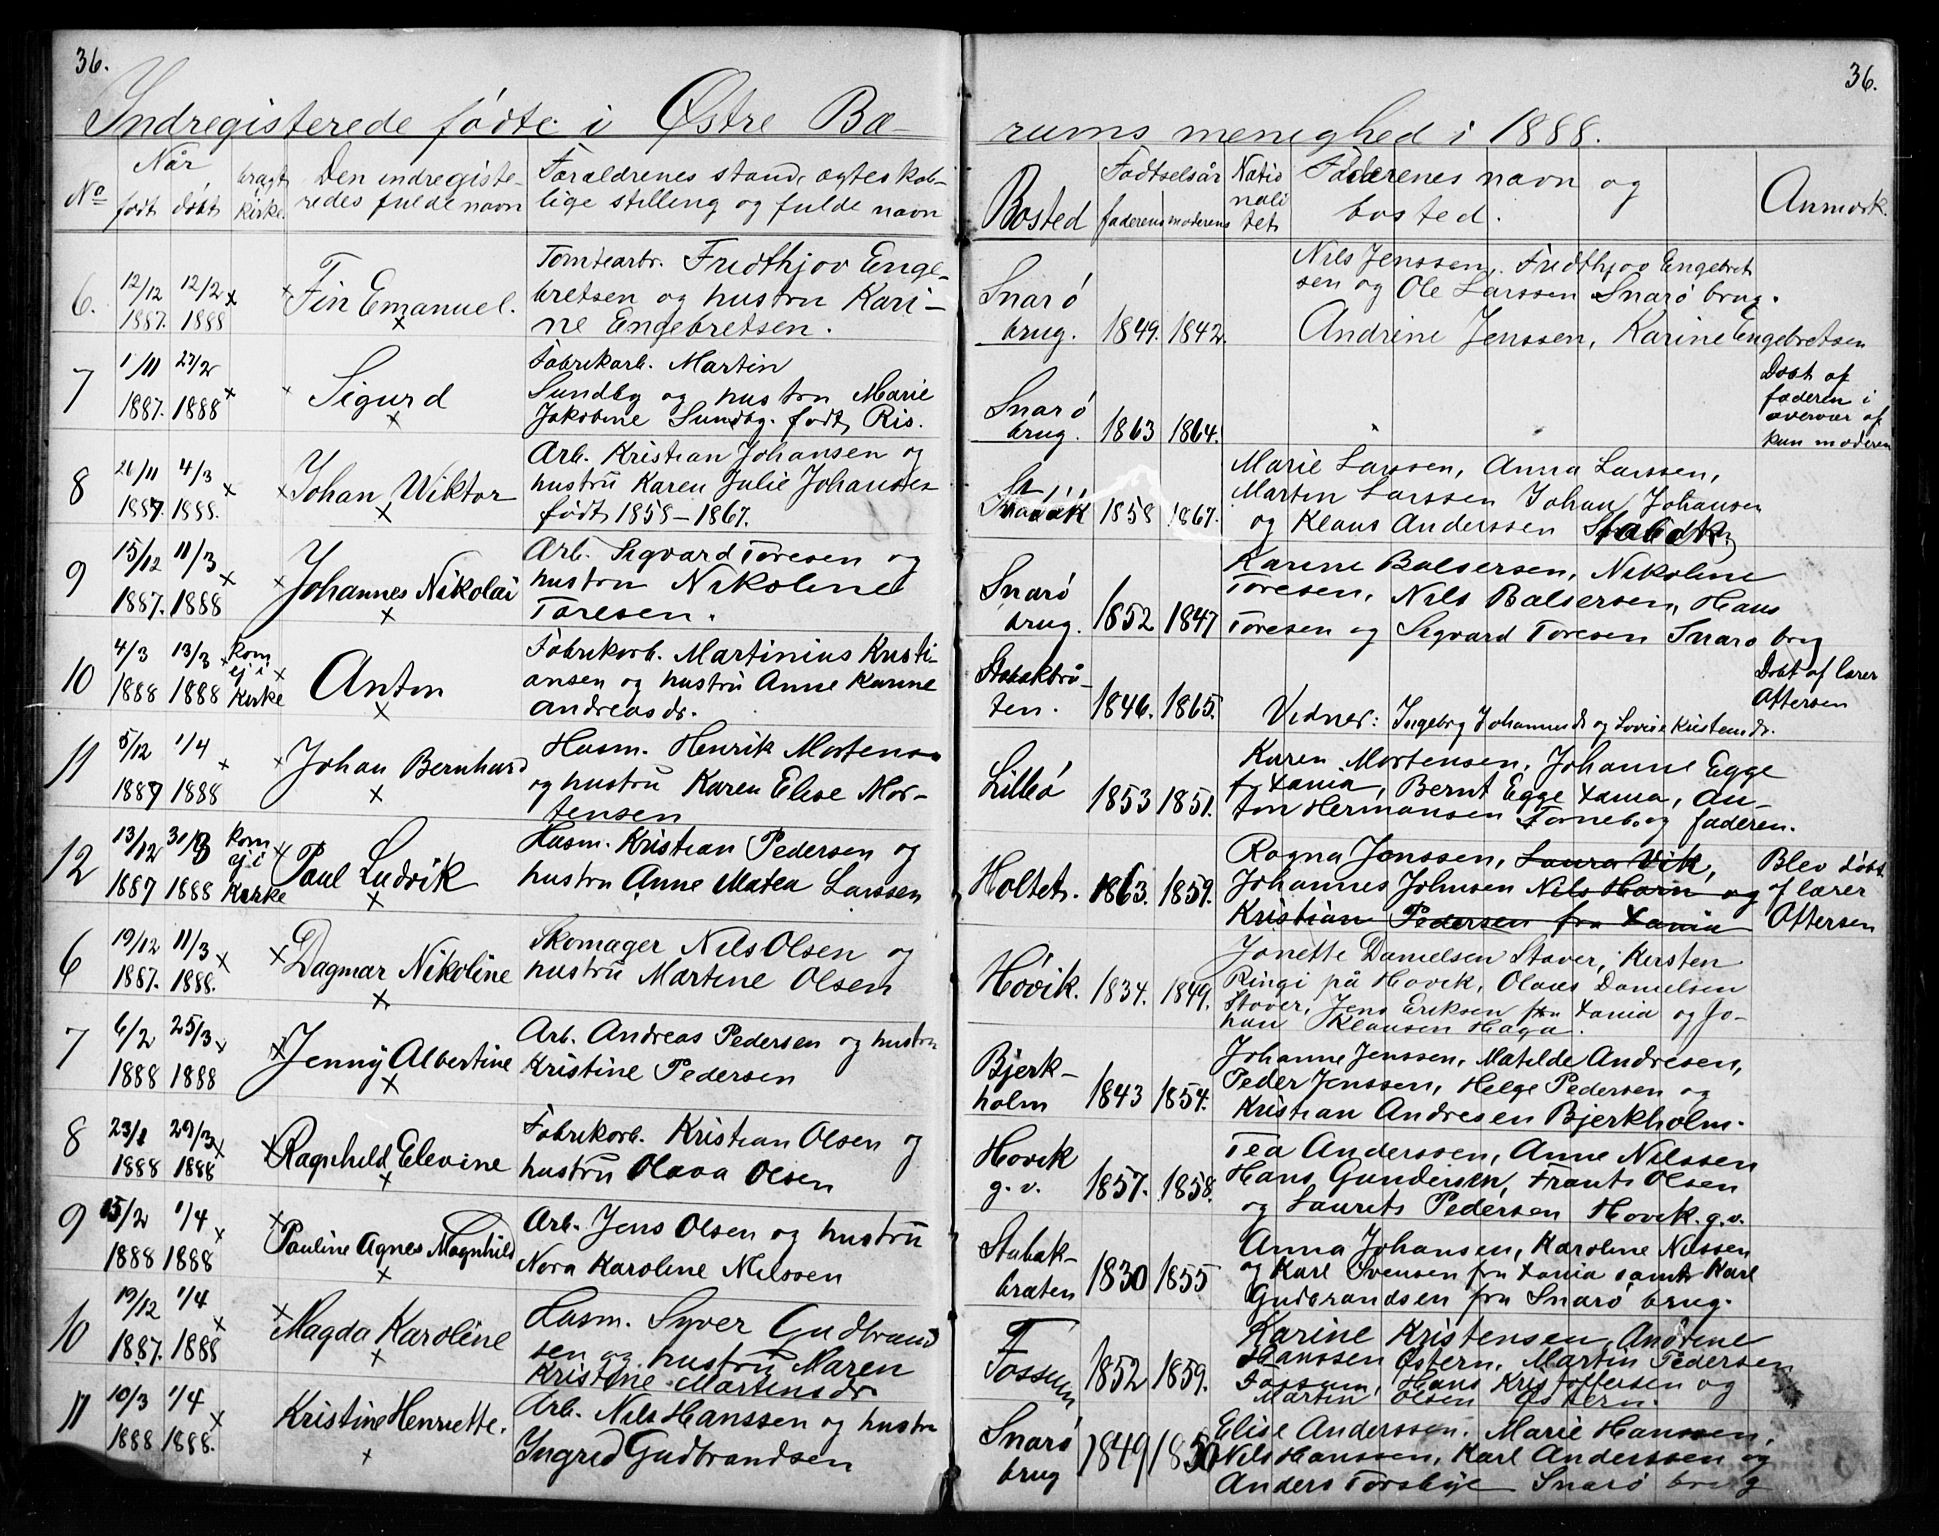 36.
Indregisterede fødte i Østre Bæ-
No
Når
født døbt
bragt
kirke
Den indregiste-
redes fulde navn
Forældrenes stand, ægteskab-
lige stilling og fulde navn
6.
12/12 12/2 x
1887. 1888
x Fin Emanuel.
x
Tomtearbr. Fridthjov Enge-
bretsen og hustru Kari-
ne Engebretsen.
7
1/11 27/2
1887. 1888 x
x Sigurd
x
Fabrikarb. Martin
Sundby og hustru Marie
Jakobine Sundby. født Ris.
8
4/3 x
1887. 1888.
x Johan Viktor
x
Arb. Kristian Johansen og
hustru Karen Julie Johansen
født 1858-1867.
9
15/12 11/3 x
1887. 1888
x Johannes Nikolai
x
Arb. Sigvard Toresen og
hustru Nikoline
Toresen.
10
4/3 13/3 x kom
ej i x
1888 1888 Kirke
Anton
x
Fabrikarb. Martinius Kristi-
ansen og hustru Anne Karine
Andreasdr.
11
5/12 1/4 x
1887 1888
x Johan Bernhard
x
Husm. Henrik Mortensen
og hustru Karen Elise Mor-
tensen
12
13/12 kom
ej i
1887 1888 Kirke
Paul Ludvik
x
Husm. Kristian Pedersen og
hustru Anne Matea Larssen
6
19/12 11/3 x
1887. 1888.
x Dagmar Nikoline
x
Skomager Nils Olsen og
hustru Martine Olsen
7
6/2 25/3 x
1888 1888
x Jenny Albertine
x
Arb. Andreas Pedersen og hustru
Kristine Pedersen
8
23/1 29/3 x
1888 1888
x Ragnhild Elevine
x
Fabrikarb. Kristian Olsen og
hustru Olava Olsen
9
15/2 1/4 x
1888 1888
x Pauline Agnes Magnhild
x
Arb. Jens Olsen og hustru
Nora Karoline Nilssen
10
19/12 1/4 x
1887. 1888
x Magda Karoline
x
Husm. Syver Gudbrand
sen og hustru Maren
Kristine Martinsdr
11
10/3 1/4 x
1888 1888.
Kristine Henriette.
x
Arb. Nils Hanssen og hustru
Ingrid Gudbrandsen
36.
rums menighed i 1888.
Bosted
Fødselsår
faderens moderens
Natio
nali
tet
Fadderenes navn og
bosted.
Anmærk.
Snarø
brug. 1849. 1842.
Nils Jenssen, Fridthjov Engebret
sen og Ole Larssen Snarø brug.
Andrine Jenssen, Karine Engebretsen
Snarø
brug. 1863 1864.
Døbt af
faderen i
overvær af
kun moderen
1858 1867.
Marie Larssen, Anna Larssen,
Martin Larssen Johan Johansen
og Klaus Anderssen Stabæk
Snarø
brug. 1852 1847
Karine Balsersen, Nikoline
Toresen, Nils Balsersen, Hans
Toresen og Sigvard Toresen Snarø brug
Stabækbrå-
ten. 1846. 1865.
Vidner: Ingebrg Johannesdr og Lovise Kristensdr.
Døbt af lærer
Ottersen
Lilleø 1853 1851.
Karen Mortensen, Johanne Egge
f. Xania, Bernt Egge Xania, An-
ton Hermansen Fornebo og faderen.
Holtet. 1863. 1859.
Ragna Jenssen, Laura Vik,
Johannes Johnsen Nils Horn og
Kristian Pedersen fra Xania
Blev døbt
af lærer
Ottersen
Høvik. 1834. 1849.
Jonette Danielsen Staver, Kirsten
Ringi på Høvik, Olaus Danielsen
Staver, Jens Eriksen fra Xania og Jo-
han Klausen Haga.
Bjerk-
holm 1843 1854.
Johanne Jenssen, Matilde Andresen,
Peder Jenssen, Helge Pedersen og
Kristian Andresen Bjerkholm.
Høvik
g. v. 1857. 1858.
Tea Anderssen, Anne Nilssen
Hans Gundersen, Frants Olsen
og Laurits Pedersen Høvik. g.v.
Stabæk-
bråten 1830 1855
Anna Johansen, Karoline Nilssen
og Karl Svensen fra Xania samt Karl
Gudbrandsen fra Snarø brug.
Fossum 1852 1859.
Karine Kristensen, Andrine
Hanssen Østern, Martin Pedersen
Fossum, Hans Kristoffersen og
Martin Olsen Østern.
Snarø
brug 1849 1850
Elise Anderssen. Marie Hanssen,
Nils Hanssen, Karl Anderssen og
Anders Torsbye Snarø brug